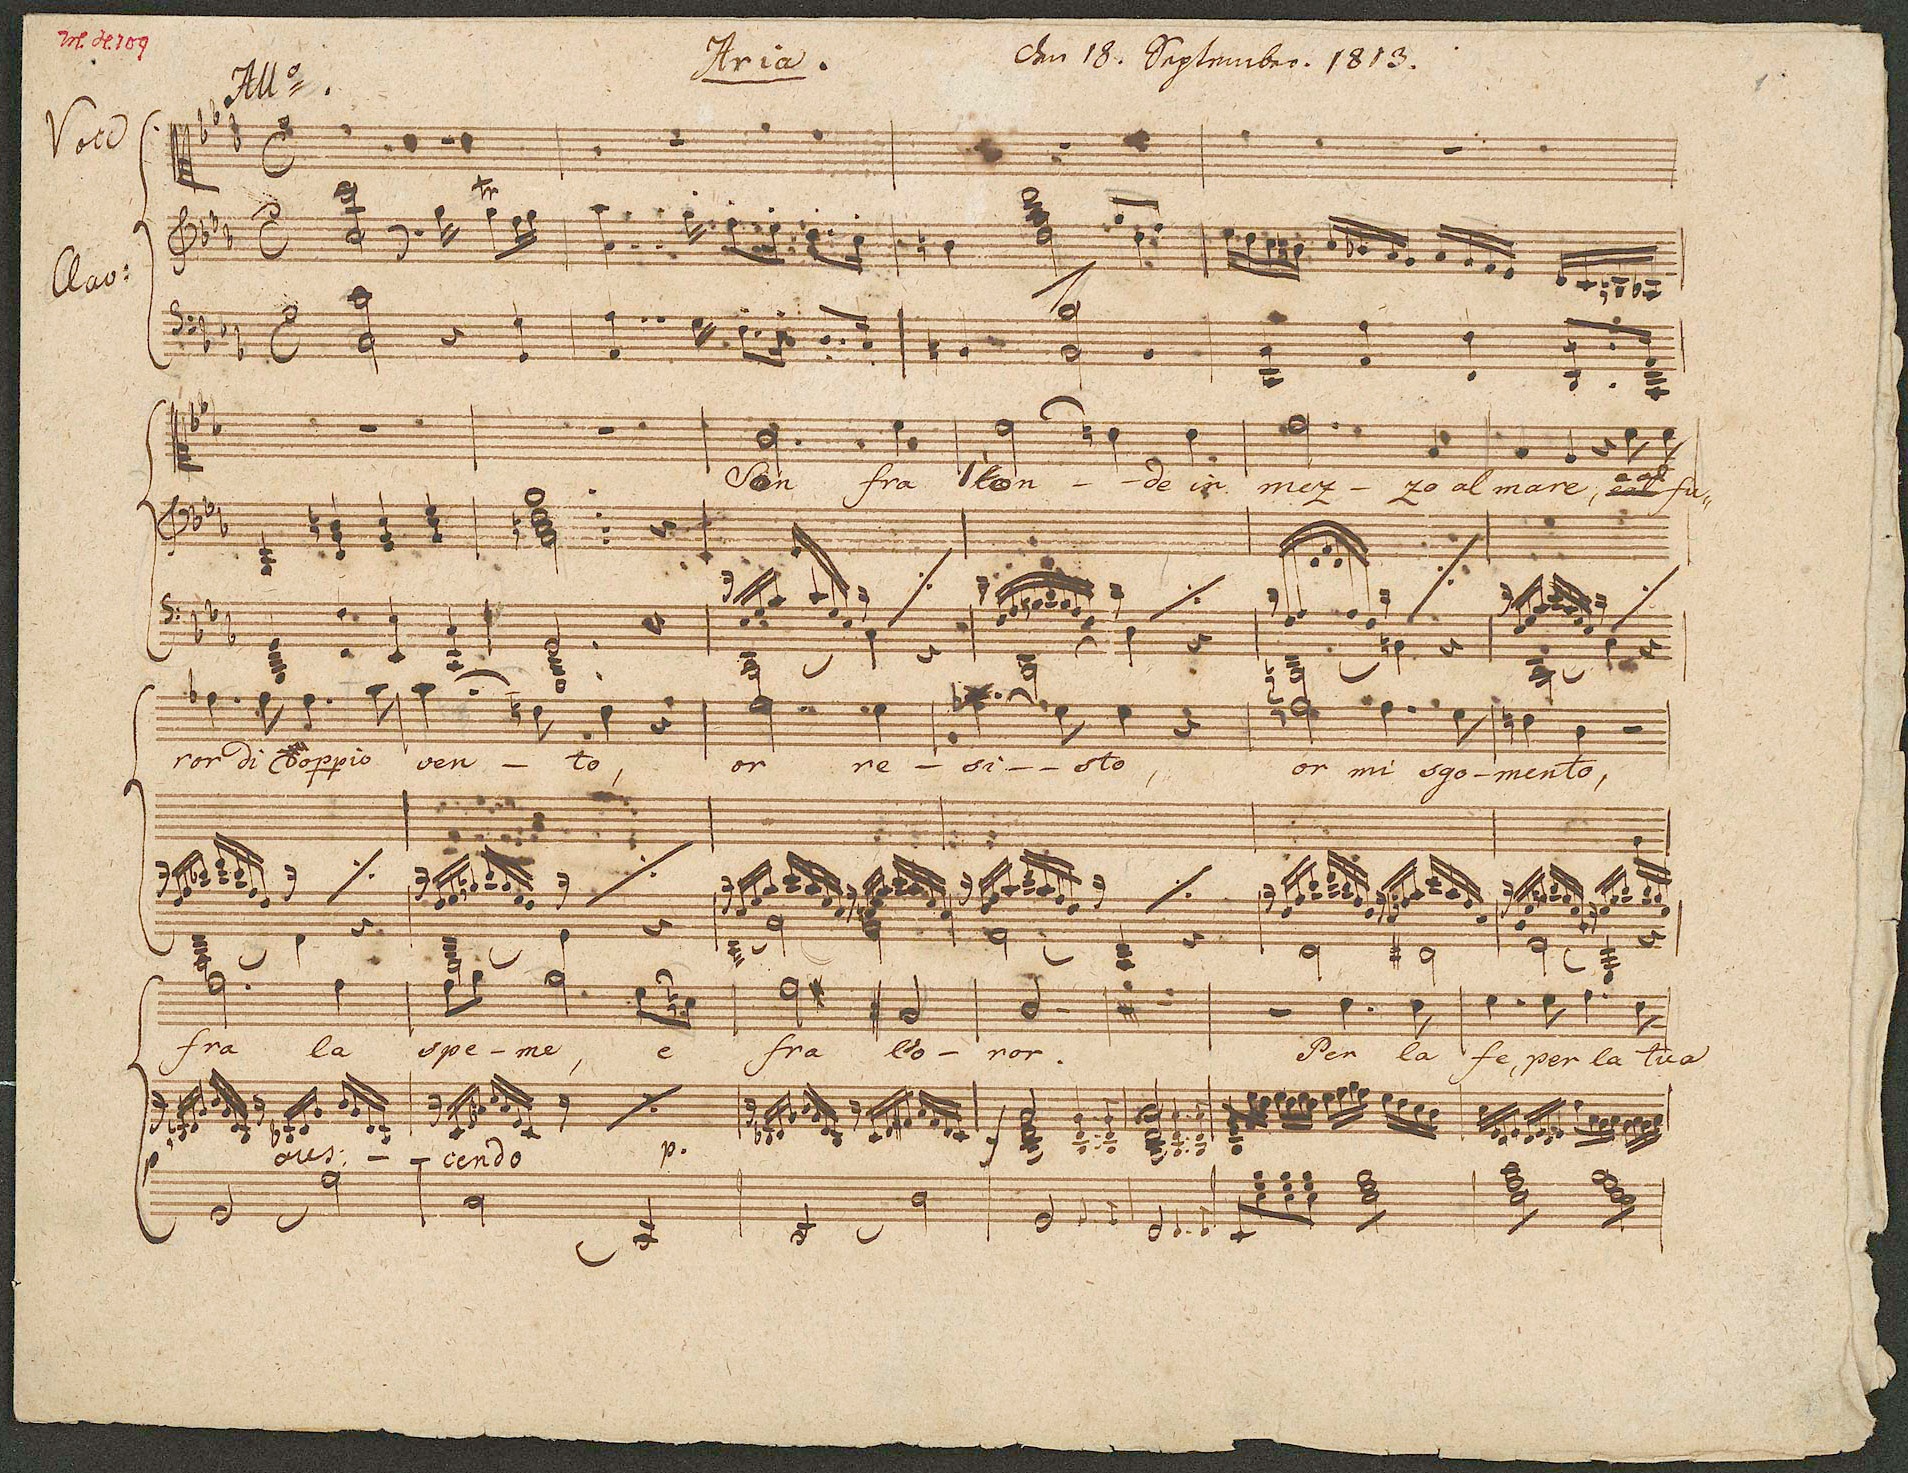 Aria. den 18. September. 1813.
All:o
Voce
Clav:
tr
Son fra l'on - - de in mez - zo al mare, e al fu„
ror di doppio ven - to, or re - si - - sto, or mi sgo - mento,
fra la spe - me, e fra l'o - ror. Per la fe, per la tua
p cres: - - cendo p. f